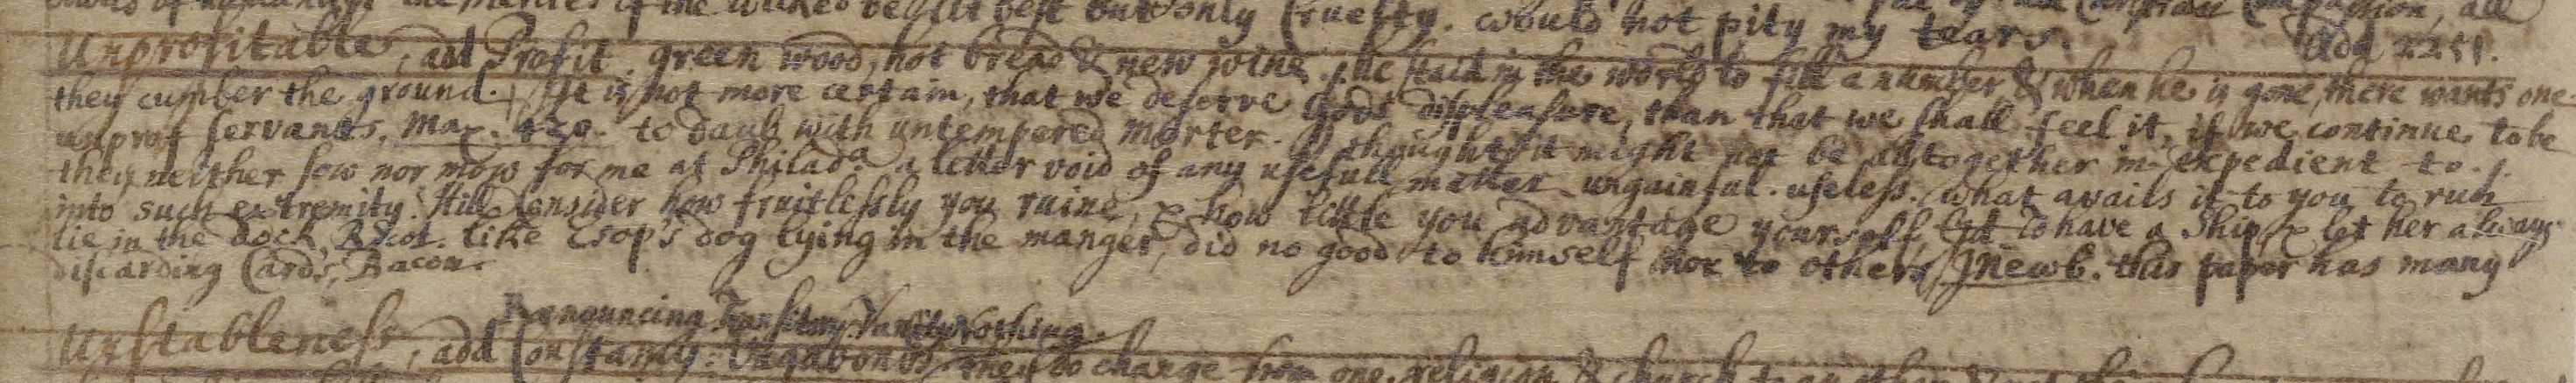 the wicked best but only Cruelty. would not pity my tears.
Add 2251.
Unprofitable, add Profit. green wood, hot bread & new wine. he staid in the world to fill a number & when he is gone, there wants one.
they cumber the ground. It is not more certain, that we deserve Gods displeasure, than that we shall feel it, if we continue to be
unprof servants. 420. to daub with untempered morter. thought it might not be altogether in-expedient to.
they neither sow nor mow for me at Philada. a letter void of any usefull matter. ungainful. useless. what avails it to you to run
into such extremity. Still Consider how fruitlessly you ruine, & how little you advantage yourself, to have a Ship & let her always
lie in the dock, like Esop's dog lying in the manger, did no good to himself nor to others, Newb. this paper has many
discarding Card's, Bacon.
Renouncing Transitory Vanity Nothing.
Unstableness, add Constancy. Vagabonds. they do change from one religion & church to another